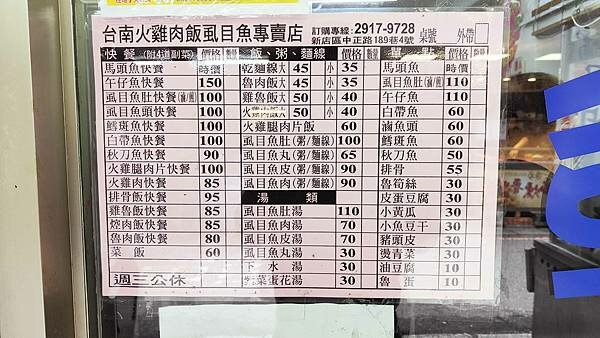 台南火雞肉飯虱目魚專賣店
訂購專線:2917-9728
新店區中正路189巷4號
桌號
外帶
快餐(附4道副菜) 價格 數量
馬頭魚快餐 時價
午仔魚快餐 150
虱目魚肚快餐(滷/煎) 100
虱目魚頭快餐 100
鱈斑魚快餐 100
白帶魚快餐 100
秋刀魚快餐 90
火雞腿肉片快餐 100
火雞肉快餐 85
排骨飯快餐 95
雞魯飯快餐 85
焢肉飯快餐 85
魯肉飯快餐 80
菜飯 60
週三公休
飯、粥、麵線 價格 數量
乾麵線 大 45 小 35
魯肉飯 大 45 小 35
雞魯飯 大 50 小 40
大 50 小 40
火雞腿肉片飯 60
虱目魚肚(粥/麵線) 100
虱目魚丸(粥/麵線) 65
虱目魚皮(粥/麵線) 90
虱目魚肉(粥/麵線) 90
湯類
虱目魚肚湯 110
虱目魚肉湯 70
虱目魚皮湯 70
虱目魚丸湯 30
下水湯 30
紫菜蛋花湯 30
單點 價格 數量
馬頭魚 時價
虱目魚肚(滷/煎) 110
午仔魚 110
白帶魚 60
滷魚頭 60
鱈斑魚 60
秋刀魚 55
排骨 55
魯筍絲 30
皮蛋豆腐 30
小黃瓜 30
小魚豆干 30
豬頭皮 30
燙青菜 30
油豆腐 10
魯蛋 10